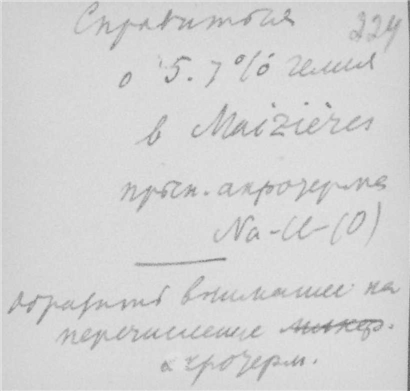 Справиться 224
о 5.7% гелия
в Maizières
прѣсн. акротерма
Na-Cl-(O)
обратить внимание на
перечисление
акротерм.